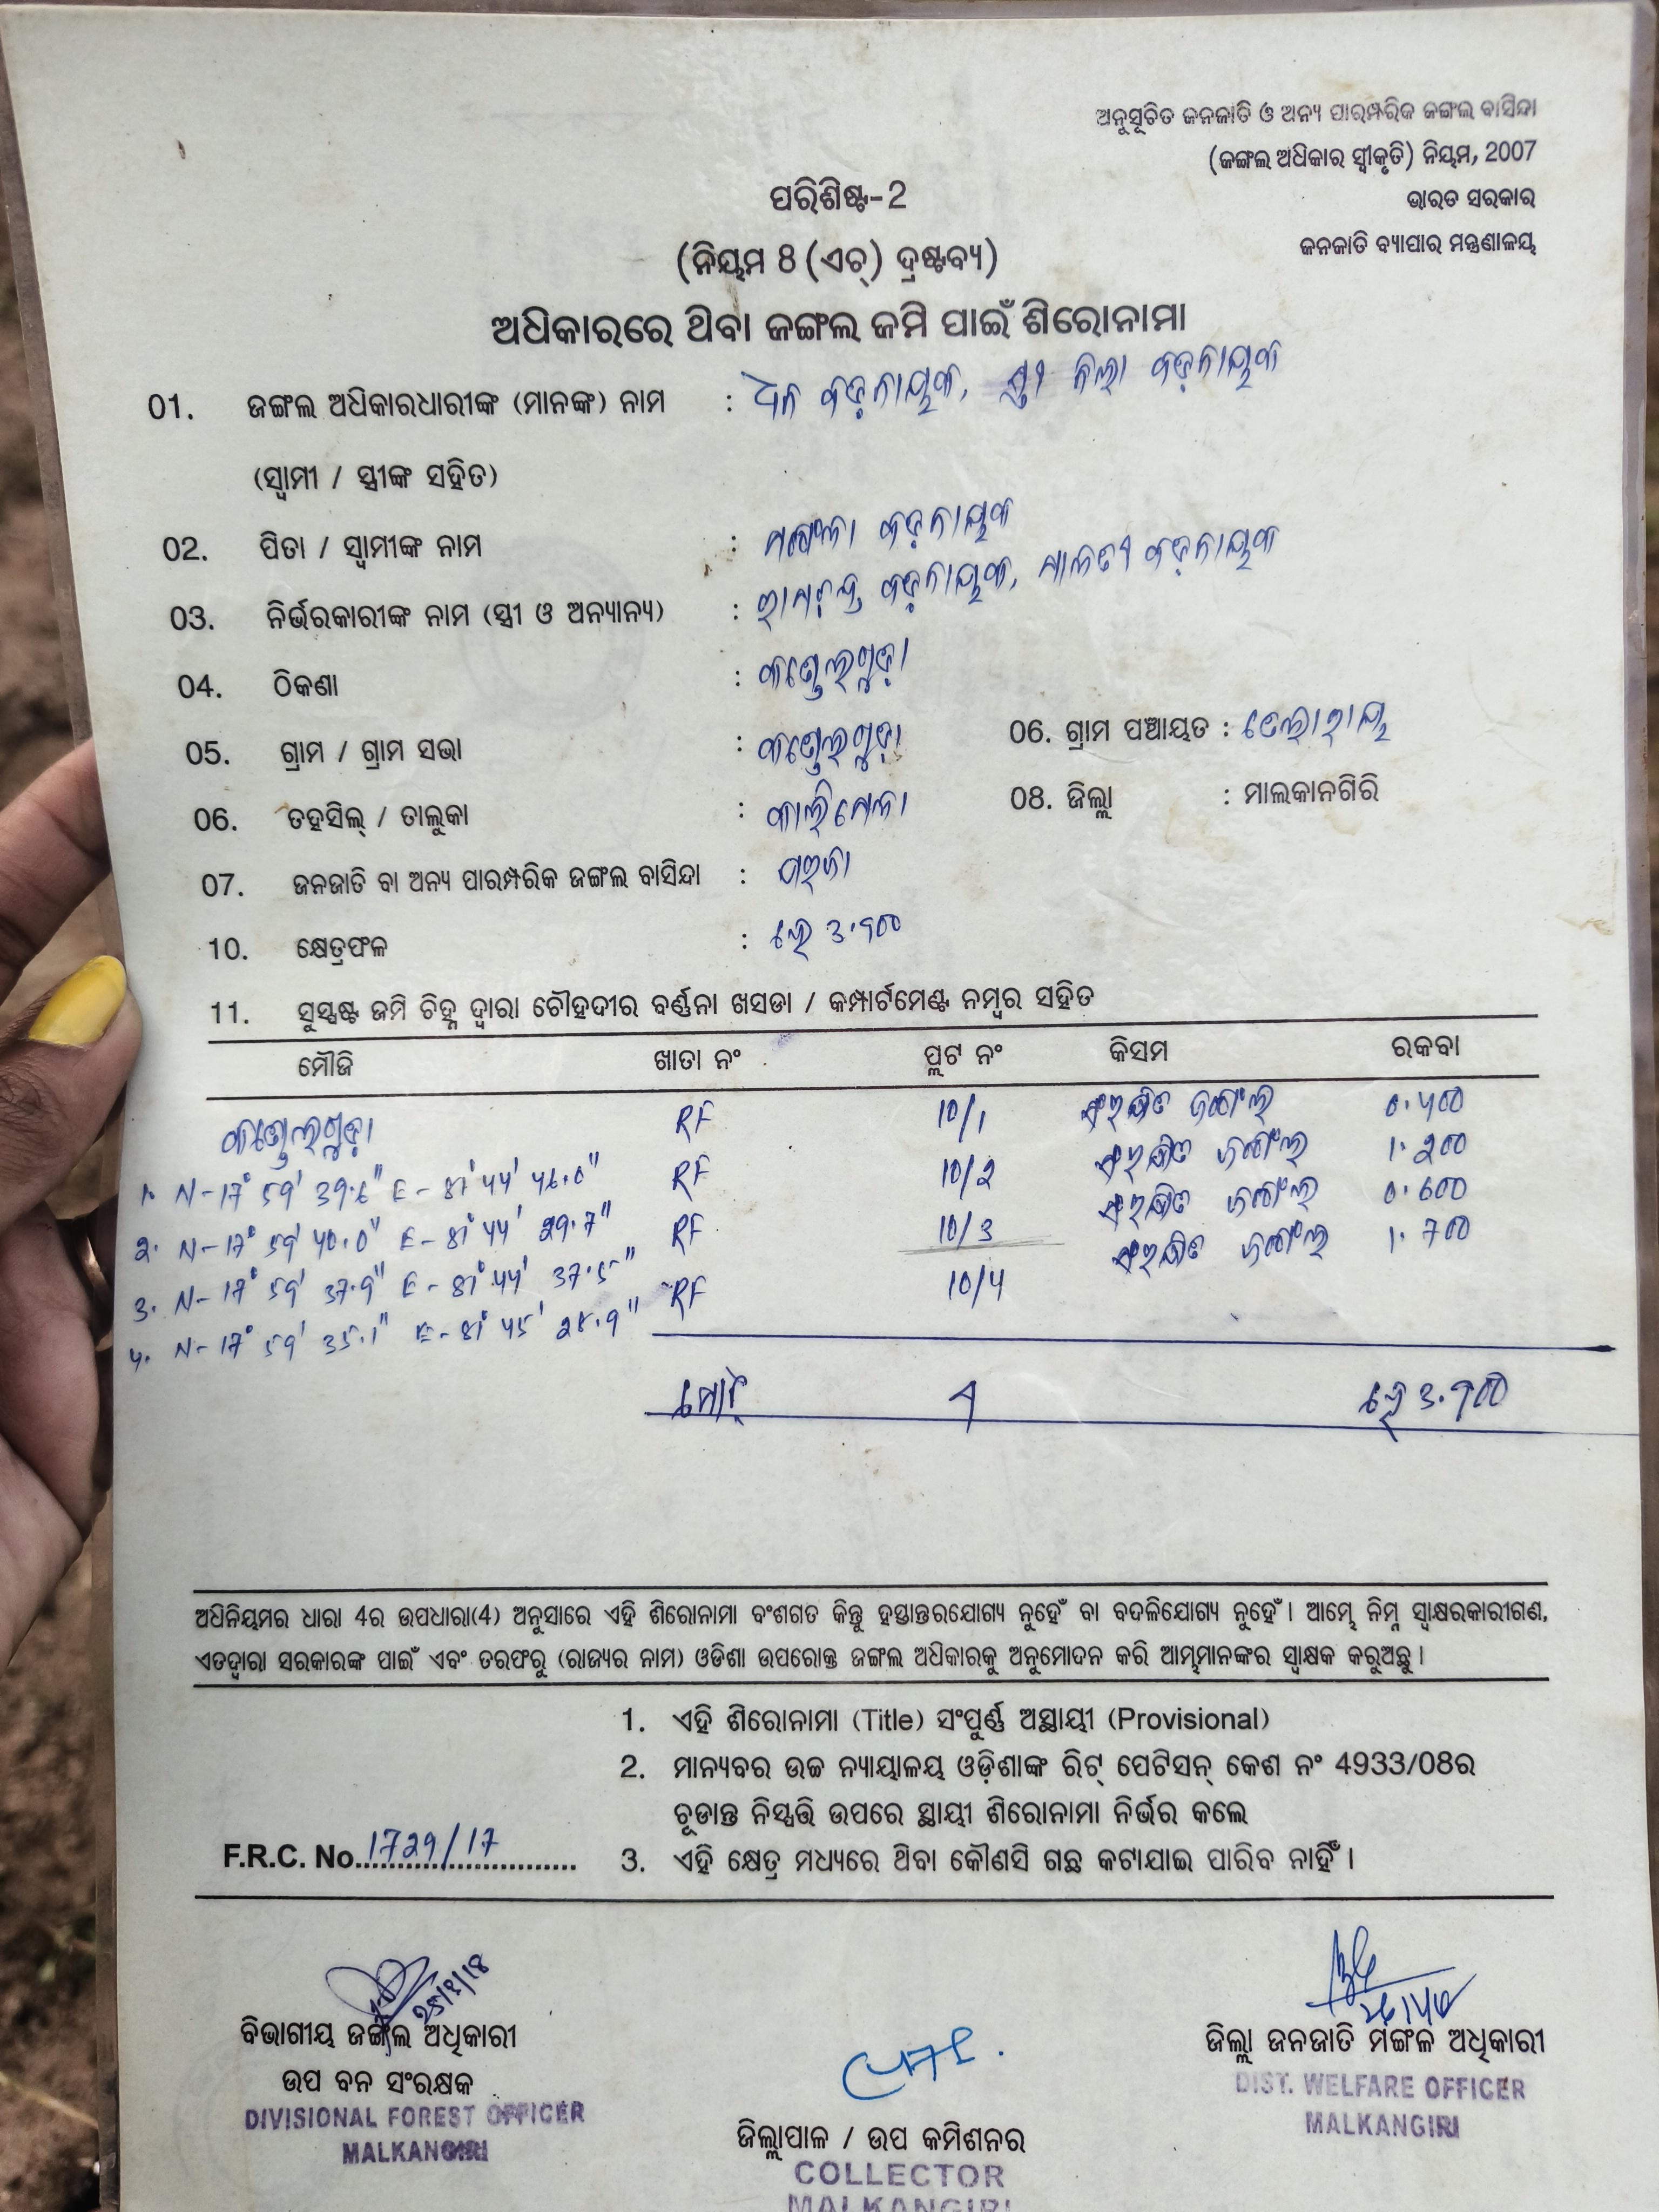 ଅନୁସୂଚିତ ଜନଜାତି ଓ ଅନ୍ୟ ପାରମ୍ପରିକ ଜଙ୍ଗଲ ବାସିନ୍ଦା
(ଜଙ୍ଗଲ ଅଧିକାର ସ୍ୱୀକୃତି) ନିୟମ, 2007
ଭାରତ ସରକାର
ଜନଜାତି ବ୍ୟାପାର ମନ୍ତ୍ରଣାଳୟ
ପରିଶିଷ୍ଟ-2
(ନିୟମ 8 (ଏଚ୍) ଦ୍ରଷ୍ଟବ୍ୟ)
ଅଧିକାରରେ ଥିବା ଜଙ୍ଗଲ ଜମି ପାଇଁ ଶିରୋନାମା
01. ଜଙ୍ଗଲ ଅଧିକାରଧାରୀଙ୍କ (ମାନଙ୍କ) ନାମ : ଧନ ବଡ଼ନାୟକ, ବଡ଼ନାୟକ
(ସ୍ୱାମୀ / ସ୍ତ୍ରୀଙ୍କ ସହିତ)
02. ପିତା / ସ୍ୱାମୀଙ୍କ ନାମ : ବଡ଼ନାୟକ
03. ନିର୍ଭରକାରୀଙ୍କ ନାମ (ସ୍ତ୍ରୀ ଓ ଅନ୍ୟାନ୍ୟ) : ରାମଚନ୍ଦ୍ର ବଡ଼ନାୟକ, ମାଳତୀ ବଡ଼ନାୟକ
04. ଠିକଣା :
05. ଗ୍ରାମ / ଗ୍ରାମ ସଭା : 06. ଗ୍ରାମ ପଞ୍ଚାୟତ :
06. ତହସିଲ୍ / ତାଲୁକା : କାଲିମେଳା 08. ଜିଲ୍ଲା : ମାଲକାନଗିରି
07. ଜନଜାତି ବା ଅନ୍ୟ ପାରମ୍ପରିକ ଜଙ୍ଗଲ ବାସିନ୍ଦା : ପରଜା
10. କ୍ଷେତ୍ରଫଳ : ହେ 3.900
11. ସୁସ୍ପଷ୍ଟ ଜମି ଚିହ୍ନ ଦ୍ୱାରା ଚୌହଦୀର ବର୍ଣ୍ଣନା ଖସଡା / କମ୍ପାର୍ଟମେଣ୍ଟ ନମ୍ବର ସହିତ
ମୌଜି ଖାତା ନଂ ପ୍ଲଟ ନଂ କିସମ ରକବା
RF 10/1 ସଂରକ୍ଷିତ ଜଙ୍ଗଲ 0.400
1. N-17° 59' 39.6" E-81° 44' 46.0" RF 10/2 ସଂରକ୍ଷିତ ଜଙ୍ଗଲ 1.200
2. N-17° 59' 40.0" E-81° 44' 29.7" RF 10/3 ସଂରକ୍ଷିତ ଜଙ୍ଗଲ 0.600
3. N-17° 59' 37.9" E-81° 44' 37.5" RF 10/4 ସଂରକ୍ଷିତ ଜଙ୍ଗଲ 1.700
4. N-17° 59' 35.1" E-81° 45' 28.9"
ମୋଟ୍ 4 ହେ 3.900
ଅଧିନିୟମର ଧାରା 4ର ଉପଧାରା(4) ଅନୁସାରେ ଏହି ଶିରୋନାମା ବଂଶଗତ କିନ୍ତୁ ହସ୍ତାନ୍ତରଯୋଗ୍ୟ ନୁହେଁ ବା ବଦଳିଯୋଗ୍ୟ ନୁହେଁ । ଆମ୍ଭେ ନିମ୍ନ ସ୍ୱାକ୍ଷରକାରୀଗଣ,
ଏତଦ୍ୱାରା ସରକାରଙ୍କ ପାଇଁ ଏବଂ ତରଫରୁ (ରାଜ୍ୟର ନାମ) ଓଡିଶା ଉପରୋକ୍ତ ଜଙ୍ଗଲ ଅଧିକାରକୁ ଅନୁମୋଦନ କରି ଆମ୍ଭମାନଙ୍କର ସ୍ୱାକ୍ଷକ କରୁଅଛୁ ।
1. ଏହି ଶିରୋନାମା (Title) ସଂପୁର୍ଣ୍ଣ ଅସ୍ଥାୟୀ (Provisional)
2. ମାନ୍ୟବର ଉଚ୍ଚ ନ୍ୟାୟାଳୟ ଓଡ଼ିଶାଙ୍କ ରିଟ୍ ପେଟିସନ୍ କେଶ ନଂ 4933/08ର
ଚୂଡାନ୍ତ ନିସ୍ପତ୍ତି ଉପରେ ସ୍ଥାୟୀ ଶିରୋନାମା ନିର୍ଭର କଲେ
F.R.C. No. 1729/17 3. ଏହି କ୍ଷେତ୍ର ମଧ୍ୟରେ ଥିବା କୌଣସି ଗଛ କଟାଯାଇ ପାରିବ ନାହିଁ ।
ବିଭାଗୀୟ ଜଙ୍ଗଲ ଅଧିକାରୀ
ଉପ ବନ ସଂରକ୍ଷକ
DIVISIONAL FOREST OFFICER
MALKANGIRI
ଜିଲ୍ଲାପାଳ / ଉପ କମିଶନର
COLLECTOR
MALKANGIRI
ଜିଲ୍ଲା ଜନଜାତି ମଙ୍ଗଳ ଅଧିକାରୀ
DIST. WELFARE OFFICER
MALKANGIRI